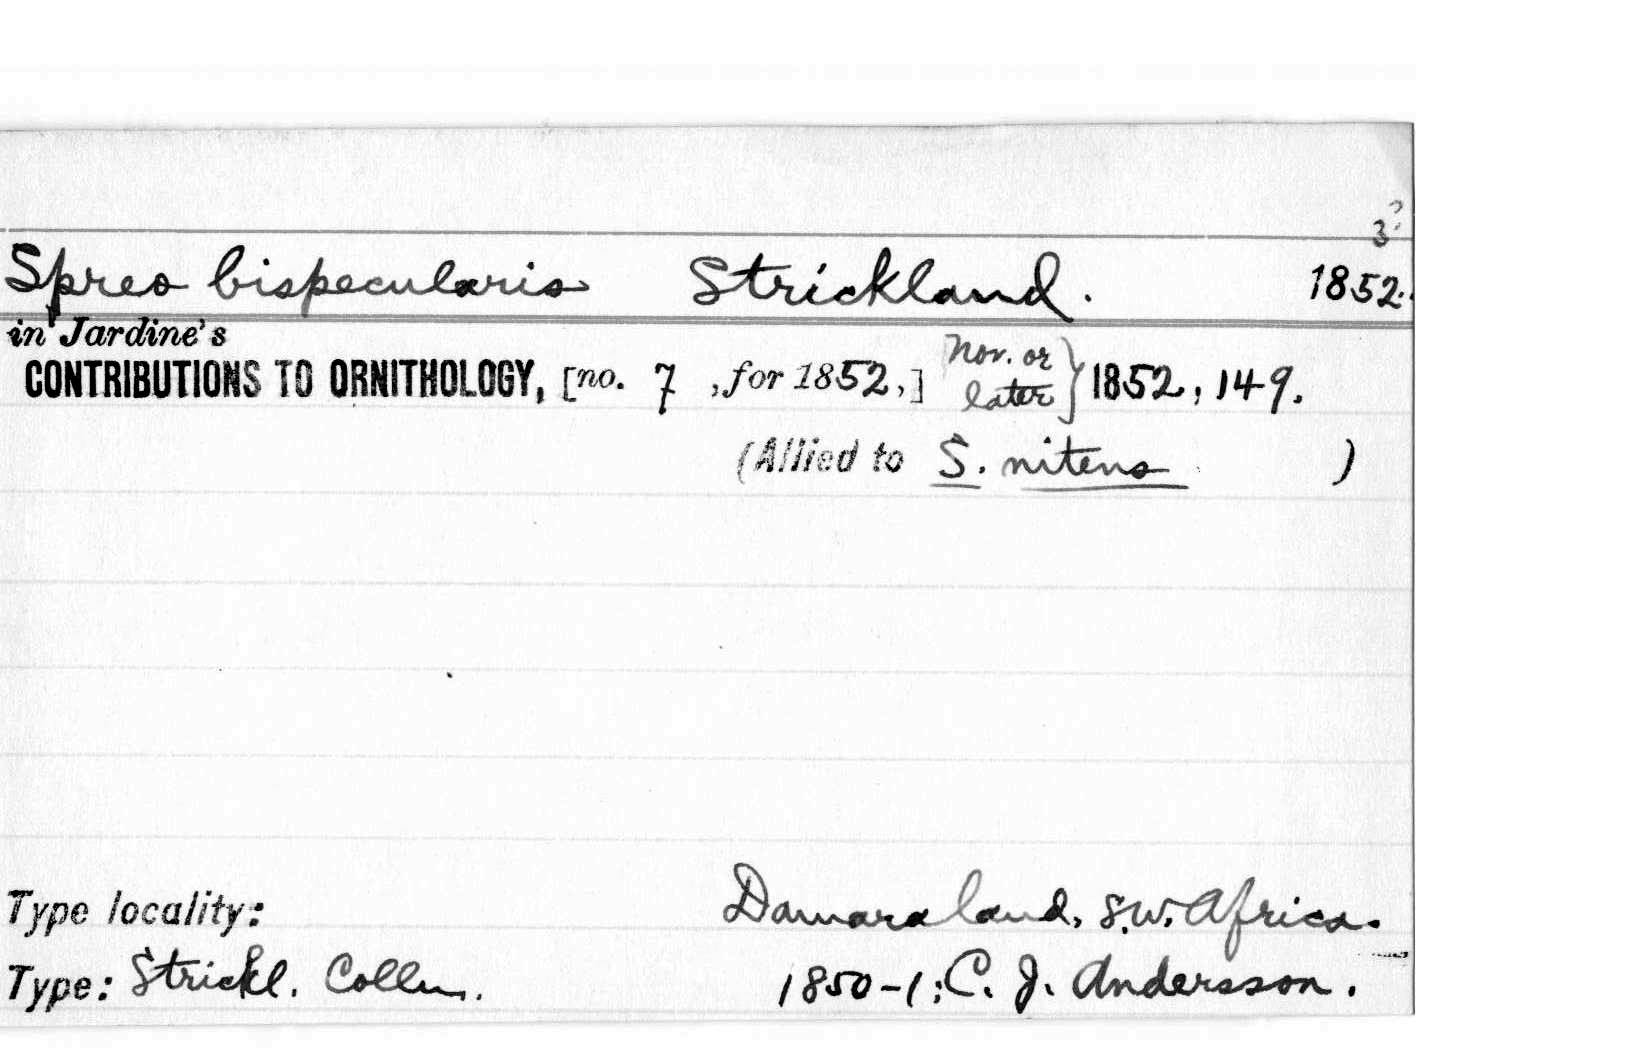 3?
Spreo bispecularis Strickland. 1852.
in Jardine's
CONTRIBUTIONS TO ORNITHOLOGY, [no. 7, for 1852,] Nov. or later} 1852, 149.
(Allied to S. nitens )
Type locality: Damaraland, S.W. Africa.
Type: Strickl. Colln. 1850-1; C. J. Andersson.